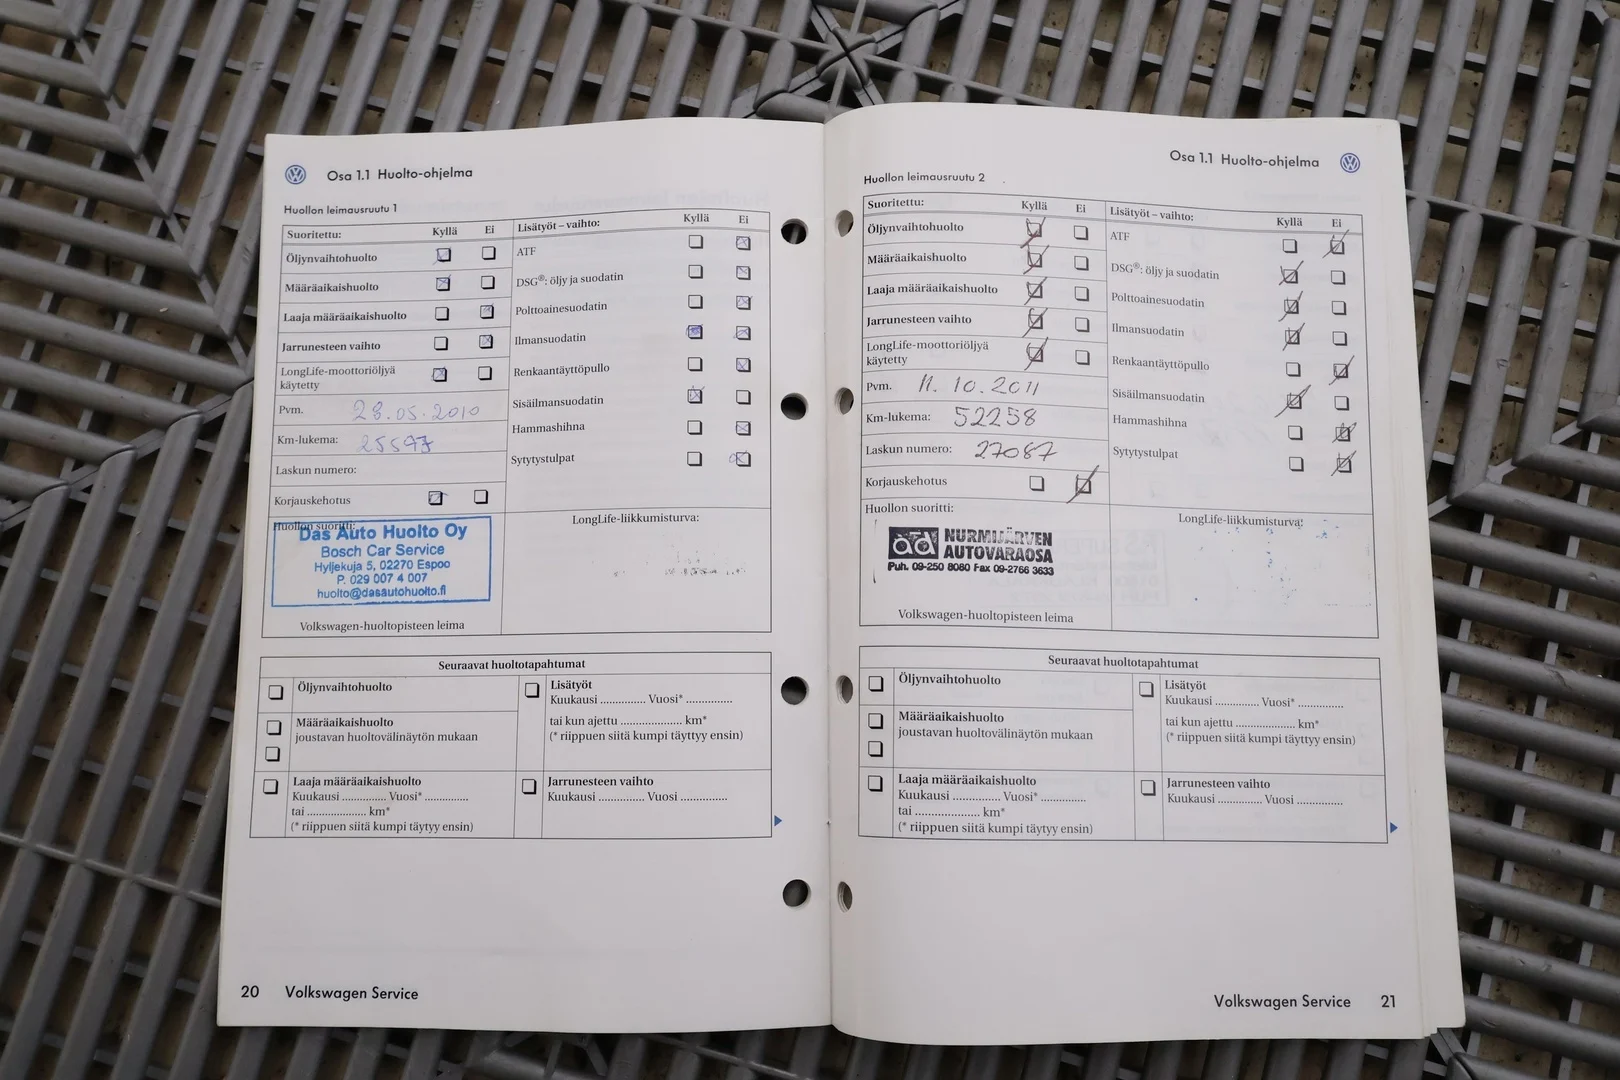 Osa 1.1 Huolto-ohjelma
Huollon leimausruutu 1
Suoritettu: Kyllä Ei
Öljynvaihtohuolto
Määräaikaishuolto
Laaja määräaikaishuolto
Jarrunesteen vaihto
LongLife-moottoriöljyä
käytetty
Pvm. 28.05.2010
Km-lukema:
Laskun numero:
Korjauskehotus
Huollon suoritti:
Das Auto Huolto Oy
Bosch Car Service
Hyljekuja 5, 02270 Espoo
P. 029 007 4 007
huolto@dasautohuolto.fi
Volkswagen-huoltopisteen leima
Lisätyöt – vaihto: Kyllä Ei
ATF
DSG®: öljy ja suodatin
Polttoainesuodatin
Ilmansuodatin
Renkaantäyttöpullo
Sisäilmansuodatin
Hammashihna
Sytytystulpat
LongLife-liikkumisturva:
Seuraavat huoltotapahtumat
Öljynvaihtohuolto
Määräaikaishuolto
joustavan huoltovälinäytön mukaan
Laaja määräaikaishuolto
Kuukausi .............. Vuosi* ..............
tai ................... km*
(* riippuen siitä kumpi täytyy ensin)
Lisätyöt
Kuukausi .............. Vuosi* ..............
tai kun ajettu ................... km*
(* riippuen siitä kumpi täyttyy ensin)
Jarrunesteen vaihto
Kuukausi .............. Vuosi ..............
20 Volkswagen Service
Osa 1.1 Huolto-ohjelma
Huollon leimausruutu 2
Suoritettu: Kyllä Ei
Öljynvaihtohuolto
Määräaikaishuolto
Laaja määräaikaishuolto
Jarrunesteen vaihto
LongLife-moottoriöljyä
käytetty
Pvm. 11.10.2011
Km-lukema: 52258
Laskun numero: 27087
Korjauskehotus
Huollon suoritti:
ad NURMIJÄRVEN
AUTOVARAOSA
Puh. 09-250 8080 Fax 09-2766 3633
Volkswagen-huoltopisteen leima
Lisätyöt – vaihto: Kyllä Ei
ATF
DSG®: öljy ja suodatin
Polttoainesuodatin
Ilmansuodatin
Renkaantäyttöpullo
Sisäilmansuodatin
Hammashihna
Sytytystulpat
LongLife-liikkumisturva:
Seuraavat huoltotapahtumat
Öljynvaihtohuolto
Määräaikaishuolto
joustavan huoltovälinäytön mukaan
Laaja määräaikaishuolto
Kuukausi .............. Vuosi* ..............
tai ................... km*
(* riippuen siitä kumpi täytyy ensin)
Lisätyöt
Kuukausi .............. Vuosi* ..............
tai kun ajettu ................... km*
(* riippuen siitä kumpi täyttyy ensin)
Jarrunesteen vaihto
Kuukausi .............. Vuosi ..............
Volkswagen Service 21